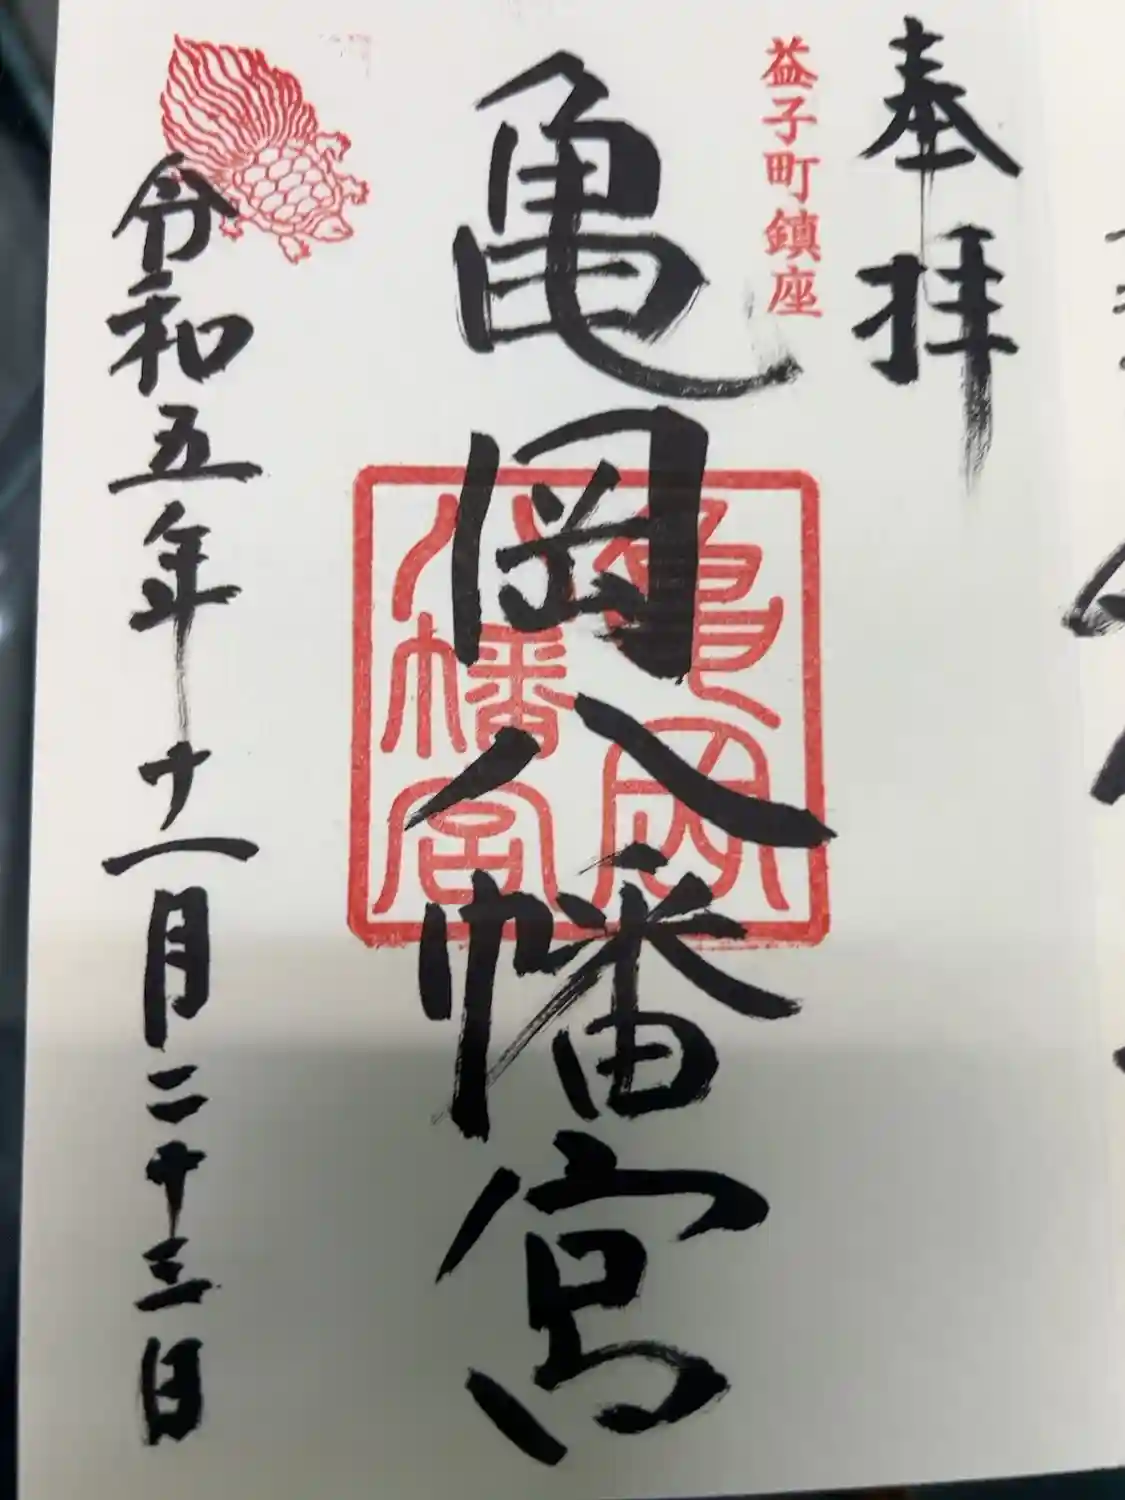 奉拝
益子町鎮座
亀岡八幡宮
亀岡
八幡宮
令和五年十一月二十三日